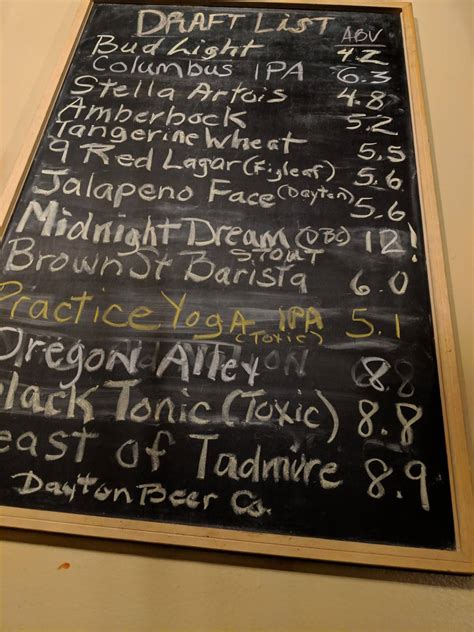 DRAFT LIST ABV
Bud Light 4.2
Columbus IPA 6.3
Stella Artois 4.8
Amberbock 5.2
Tangerine Wheat 5.5
9 Red Lagar (Figleaf) 5.6
Jalapeno Face (Dayton) 5.6
Midnight Dream (DBC) 12!
STOUT
Brown St Barista 6.0
Practice Yoga IPA 5.1
(Toxic)
Oregon Alley 8.8
lack Tonic (Toxic) 8.8
east of Tadmire 8.9
Dayton Beer Co.